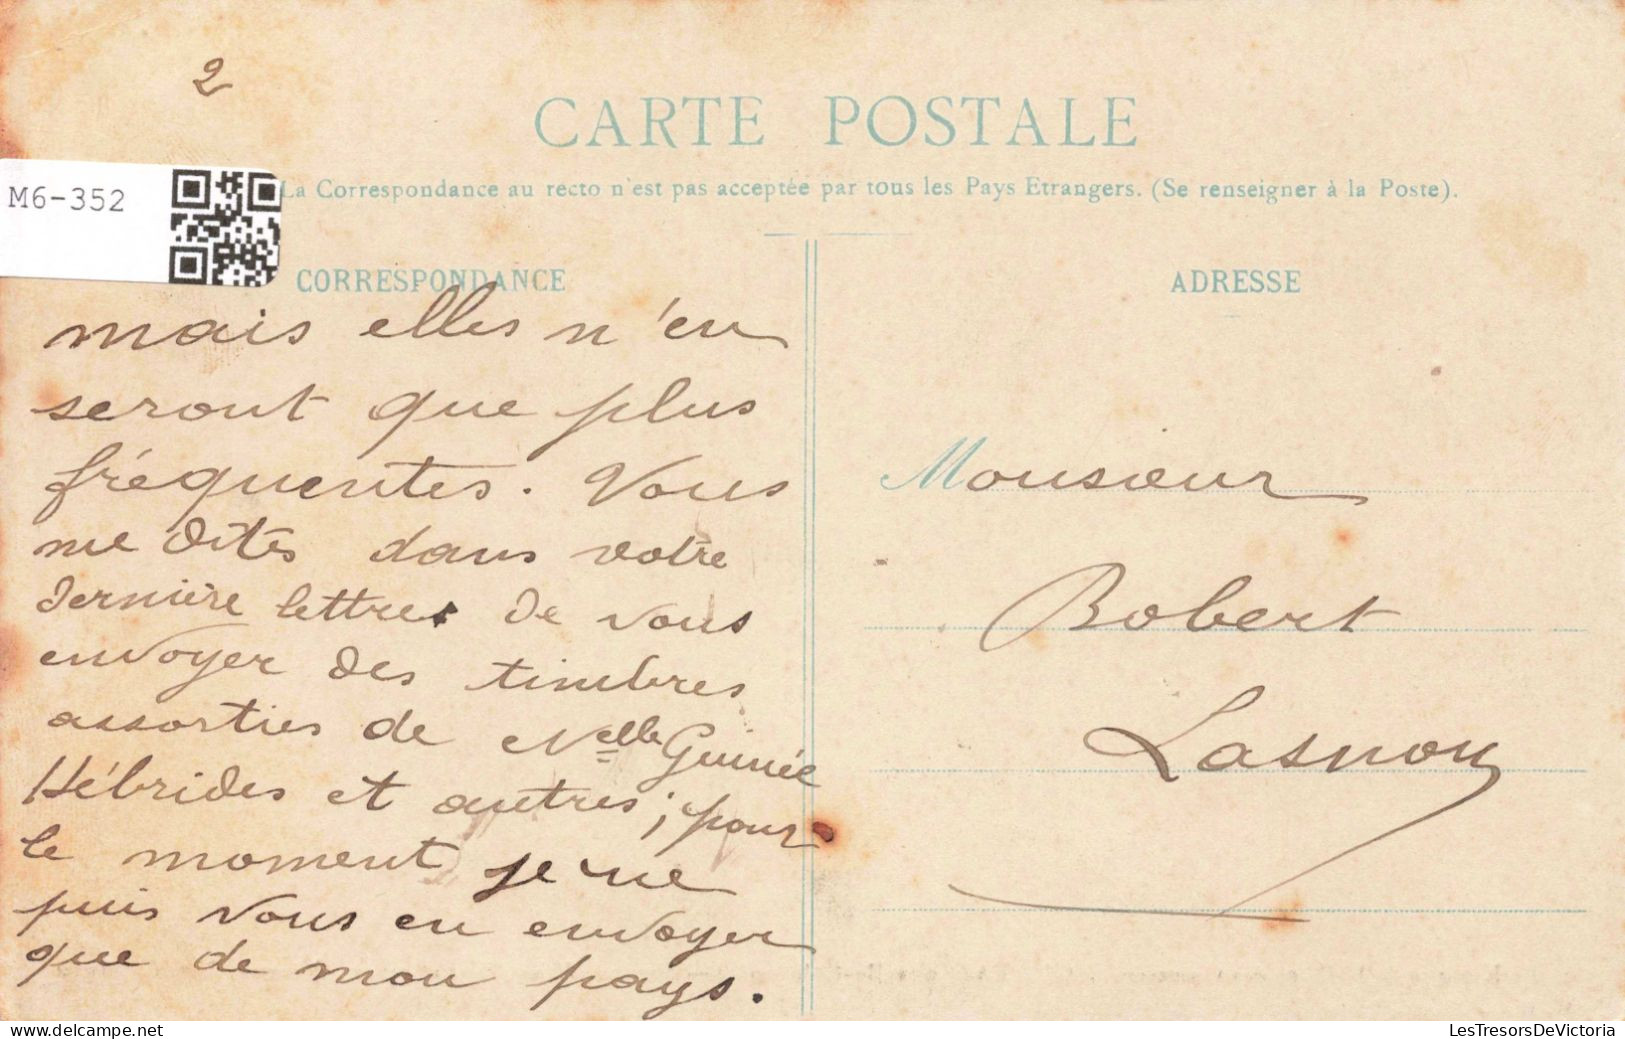 2
CARTE POSTALE
La Correspondance au recto n'est pas acceptée par tous les Pays Etrangers. (Se renseigner à la Poste).
M6-352
CORRESPONDANCE
mais elles n'en
seront que plus
fréquentes. Vous
me dites dans votre
dernière lettre de vous
envoyer des timbres
assorties de Nelle Guinée
Hébrides et autres; pour
le moment je ne
puis vous en envoyer
que de mon pays.
ADRESSE
Monsieur
Robert
Lasnon
LesTresorsDeVictoria